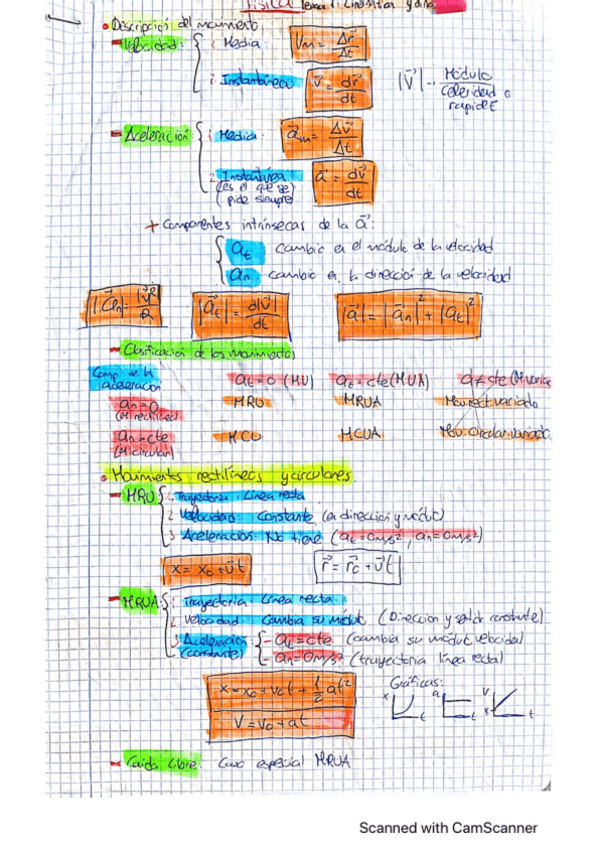 Física Tema 1: Cinemática y diná
• Descripción del movimiento
- Velocidad: 1 Media: Vm = Δr⃗/Δt
2 Instantánea v⃗ = dr⃗/dt |V⃗| → Módulo celeridad o rapidez
- Aceleración: 1 Media: a⃗m = Δv⃗/Δt
2 Instantánea: (es el que se pide siempre) a⃗ = dv⃗/dt
+ Componentes intrínsecas de la a⃗:
at cambio en el módulo de la velocidad
an cambio en la dirección de la velocidad
|a⃗n| = |v⃗|²/R |a⃗t| = d|v⃗|/dt |a⃗| = |a⃗n|² + |a⃗t|²
- Clasificación de los movimientos
Comp. de la aceleración at = 0 (MU) at = cte (MUA) a ≠ cte
an = 0 (M rectilíneo) MRU MRUA Mov. rect. variado
an = cte (M circular) MCU MCUA Mov. Circular variado
• Movimientos rectilíneos y circulares
- MRU: 1. Trayectoria Línea recta
2 Velocidad: Constante (en dirección y módulo)
3 Aceleración: No tiene (at = 0m/s², an = 0m/s²)
x = x0 + v⃗t r⃗ = r⃗0 + v⃗t
- MRUA: 1 Trayectoria Línea recta.
2 Velocidad. Cambia su módulo (Dirección y sentido constante)
3 Aceleración (constante) - at = cte (cambia su módulo velocidad)
- an = 0m/s² (trayectoria línea recta)
x = x0 + v0t + 1/2 at² Gráficas:
V = V0 + at x t a t v t
- Caída libre: Caso especial MRUA
Scanned with CamScanner